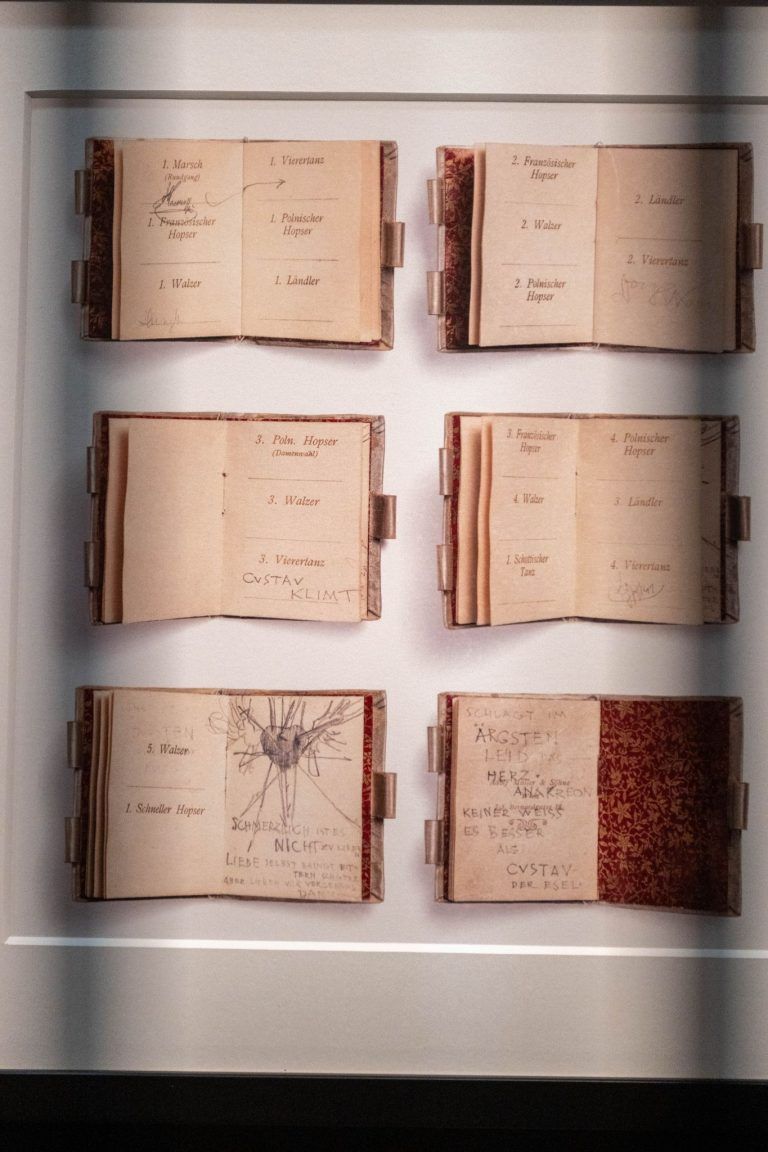 1. Marsch
(Rundgang)
1. Französischer
Hopser
1. Walzer
1. Vierertanz
1. Polnischer
Hopser
1. Ländler
2. Französischer
Hopser
2. Walzer
2. Polnischer
Hopser
2. Ländler
2. Vierertanz
3. Poln. Hopser
(Damenwahl)
3. Walzer
3. Vierertanz
GVSTAV
KLIMT
3. Französischer
Hopser
4. Walzer
1. Schottischer
Tanz
4. Polnischer
Hopser
3. Ländler
4. Vierertanz
5. Walzer
1. Schneller Hopser
SCHMERZLICH IST ES
NICHT ZU
LIEBE SELBST BRINGT BIT
TERN
ABER LIEBEN
SCHLAGT IM
ÄRGSTEN
LEID
HERZ.
ANAKREON
KEINER WEISS
ES BESSER
ALS
GVSTAV
DER ESEL